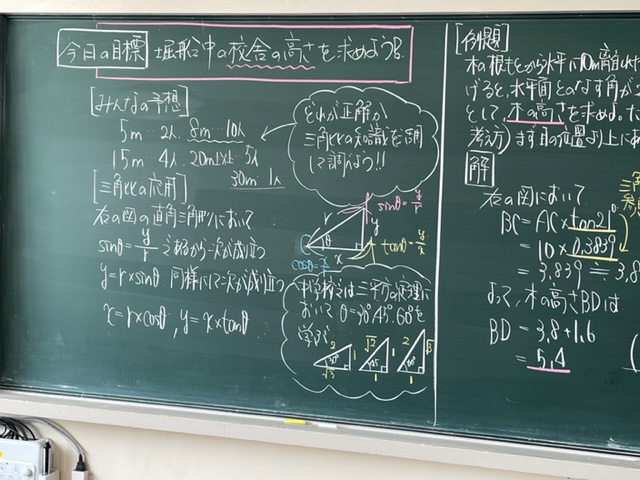 今日の目標 堀形中の校舎の高さを求めよう!!
[みんなの予想]
5m…2人. 8m…10人
15m…4人. 20m以上…5人
30m…1人
どれが正解か
三角比の知識を活用
して調べよう!!
[三角比の応用]
右の図の直角三角形において
sinθ=y/r であるから次が成り立つ
y=r×sinθ 同様にして次が成り立つ
x=r×cosθ, y=x×tanθ
sinθ=y/r
r
y
θ
x
tanθ=y/x
cosθ=x/r
中学校では三平方の定理に
おいて θ=30°,45°,60°を
学ぶ
2 1 30° √3
√2 1 45° 1
2 √3 60° 1
[例題]
木の根もとから水平に10m離れ
げると、水平面となす角が2
として、木の高さを求めよ。た
考え方) まず目の位置より上にあ
解
右の図において
BC=AC×tan21°
=10×0.3839
=3.839≒3.8
よって、木の高さBDは
BD=3.8+1.6
=5.4